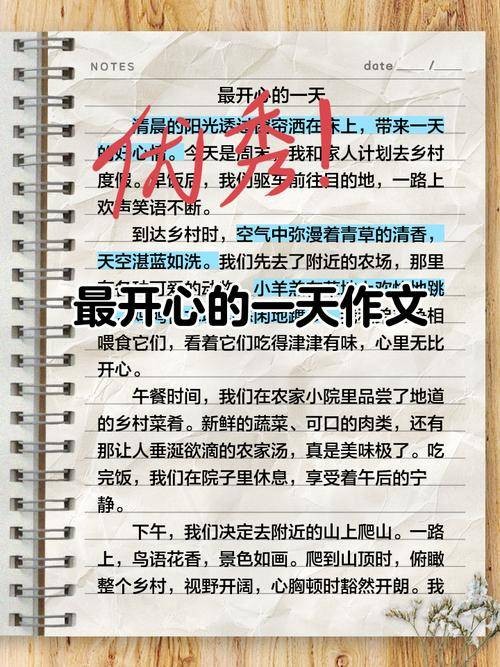 NOTES
date / 
最开心的一天
清晨的阳光透过窗帘洒在床上，带来一天
的好心情。今天是周末，我和家人计划去乡村
度假。早饭后，我们驱车前往目的地，一路上
欢声笑语不断。
优秀!
到达乡村时，空气中弥漫着青草的清香，
天空湛蓝如洗。我们先去了附近的农场，那里
小羊
地跳
最开心的一天作文
闲地
相
喂食它们，看着它们吃得津津有味，心里无比
开心。
午餐时间，我们在农家小院里品尝了地道
的乡村菜肴。新鲜的蔬菜、可口的肉类，还有
那让人垂涎欲滴的农家汤，真是美味极了。吃
完饭，我们在院子里休息，享受着午后的宁
静。
下午，我们决定去附近的山上爬山。一路
上，鸟语花香，景色如画。爬到山顶时，俯瞰
整个乡村，视野开阔，心胸顿时豁然开朗。我